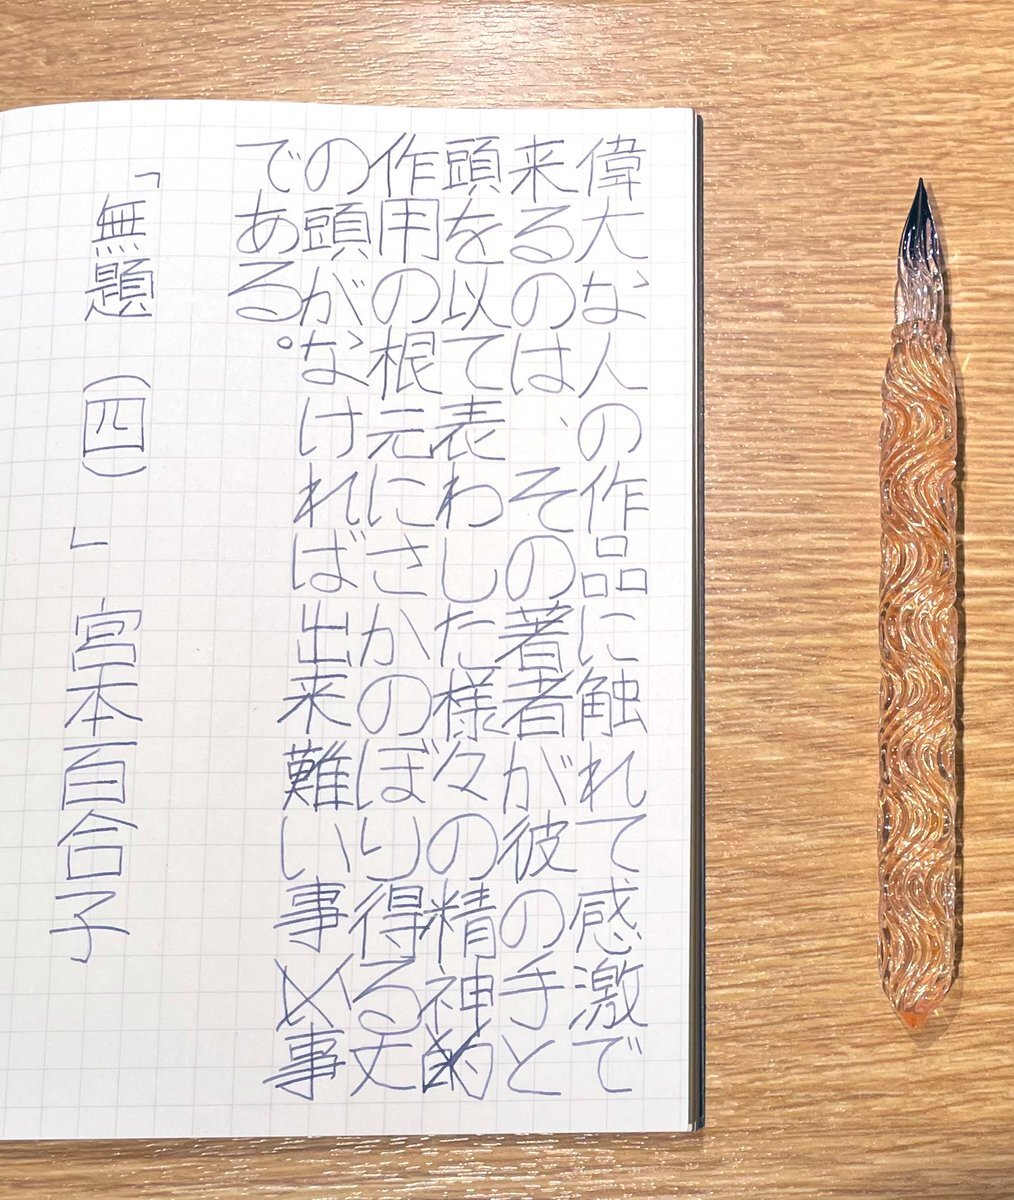 偉大な人の作品に触れて感激で
来るのは、その著者が彼の手と
頭を以て表わした様々の精神的
作用の根元にさかのぼり得る丈
の頭がなければ出来難い事
である。
「無題 (四)」 宮本百合子